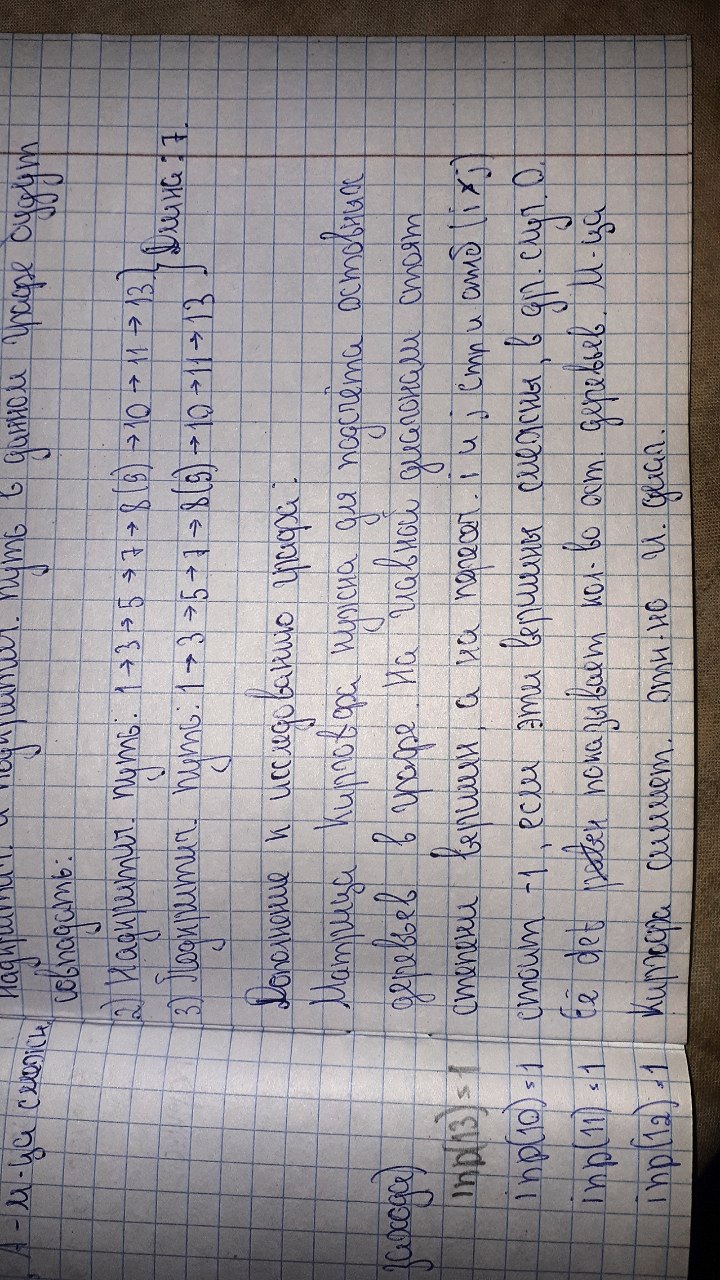 А - м-ца смежн.
захода)
inp(13) = 1
inp(10) = 1
inp(11) = 1
inp(12) = 1
путь в данном графе будут
совпадать:
2) Надкритич. путь: 1→3→5→7→8(9)→10→11→13
3) Подкритич. путь: 1→3→5→7→8(9)→10→11→13
Длина: 7.
Дополнение к исследованию графа:
Матрица Кирхгофа нужна для подсчёта остовных
деревьев в графе. На главной диагонали стоят
степени вершин, а на пересеч. i и j стр и столб (i≠j)
стоит -1, если эти вершины смежны, в др. случ. 0.
Её det равен показывает кол-во ост. деревьев. М-ца
Кирхгофа симмет. отн-но гл. диаг.